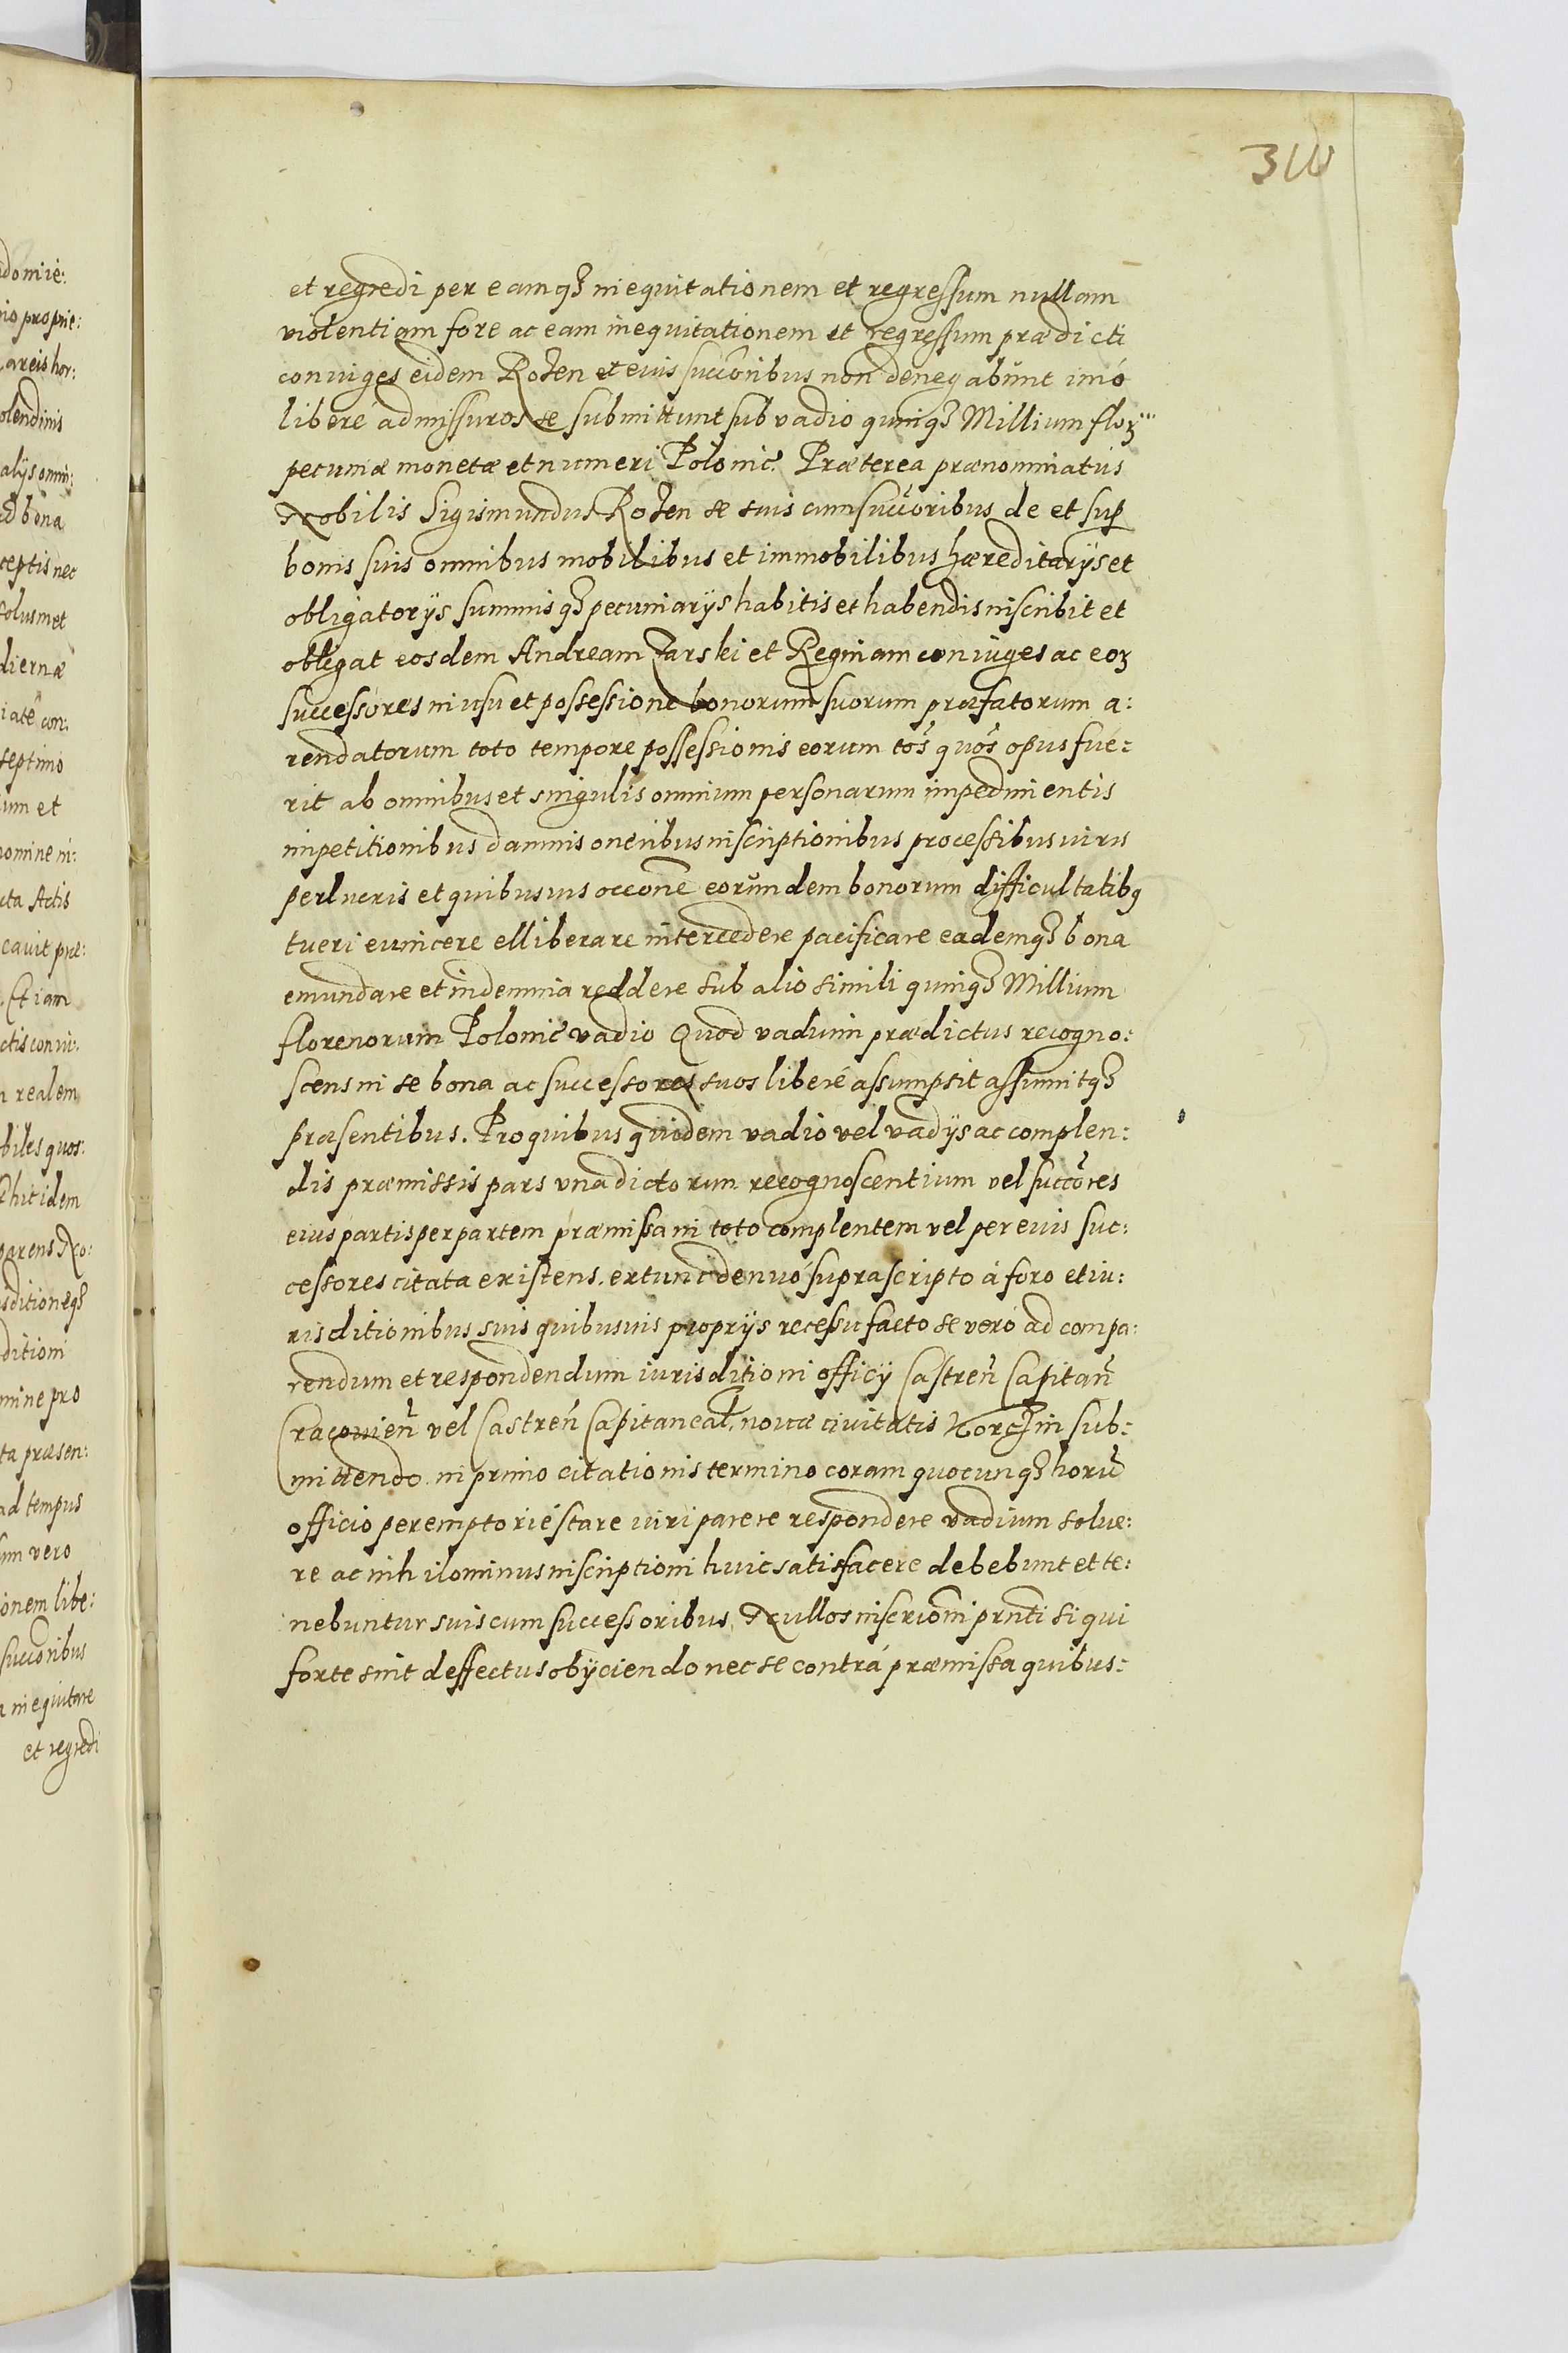 idomie:
nio proprie:
areis hor:
olendinis
alijs omni:
ad bona
ceptis nec
solus met
diernæ
iatê con:
septimo
um et
nomine ni:
uta Actis
cavit præ:
Etiam
ctis coniu:
n realem
biles quos:
hic idem
parens No:
sditioneq3
ditioni
mine pro
ta præsen:
ad tempus
um vero
ionem libe:
succõribus
a inequitare
et regredi
314
et regredi per eamq3 inequitationem et regressum nullam
violentiam fore ac eam inequitationem et regressum prædicti
coniuges eidem Rożen et eius succõribus non denegabunt imó
liberé admissuros se submittunt sub vadio quinq3 Millium floꝝ
pecuniæ monetæ et numeri Polonic. Præterea prænominatus
Nobilis Sigismundus Rożen se suis cum succõribus de et sup
bonis suis omnibus mobilibus et immobilibus hæreditarijs et
obligatorijs summisq3 pecuniarijs habitis et habendis inscribit et
obligat eosdem Andream Zarski et Reginam coniuges ac eoꝝ
successores in usu et possessione bonorum suorum præfatorum a:
rendatorum toto tempore possessionis eorum tõs quõs opus fue:
rit ab omnibus et singulis omnium personarum impedimentis
impetitionibus damnis oneribus inscriptionibus processibus iuris
perlucris et quibusuis occone eorundem bonorum difficultatibq
tueri euincere elliberare intercedere pacificare eademq3 bona
emundare et indemnia reddere sub alio simili quinq3 Millium
florenorum Polonic vadio Quod vadium prædictus recogno:
scens in se bona ac successores suos liberé assumpsit assumitq3
præsentibus. Pro quibus quidem vadio vel vadijs ac complen:
dis præmissis pars una dictorum recognoscentium vel succõres
eius partis per partem præmissa in toto complentem vel per eius suc:
cessores citata existens. extunc denuó suprascripto á foro et iu:
risditionibus suis quibusuis proprijs recessu facto se veró ad compa:
rendum et respondendum iurisditioni officij Castreñ Capitañ
Cracouieñ vel Castreñ Capitaneal, nouæ ciuitatis Korczin sub:
mittendo in primo citationis termino coram quocunq3 horũ
officio peremptorié stare iuri parere respondere vadium solue:
re ac nihilominus inscriptioni huic satisfacere debebunt et te:
nebuntur suis cum successoribus, Nullos inscriõni prnti si qui
forte sint deffectus obijciendo nec se contrá præmissa quibus: